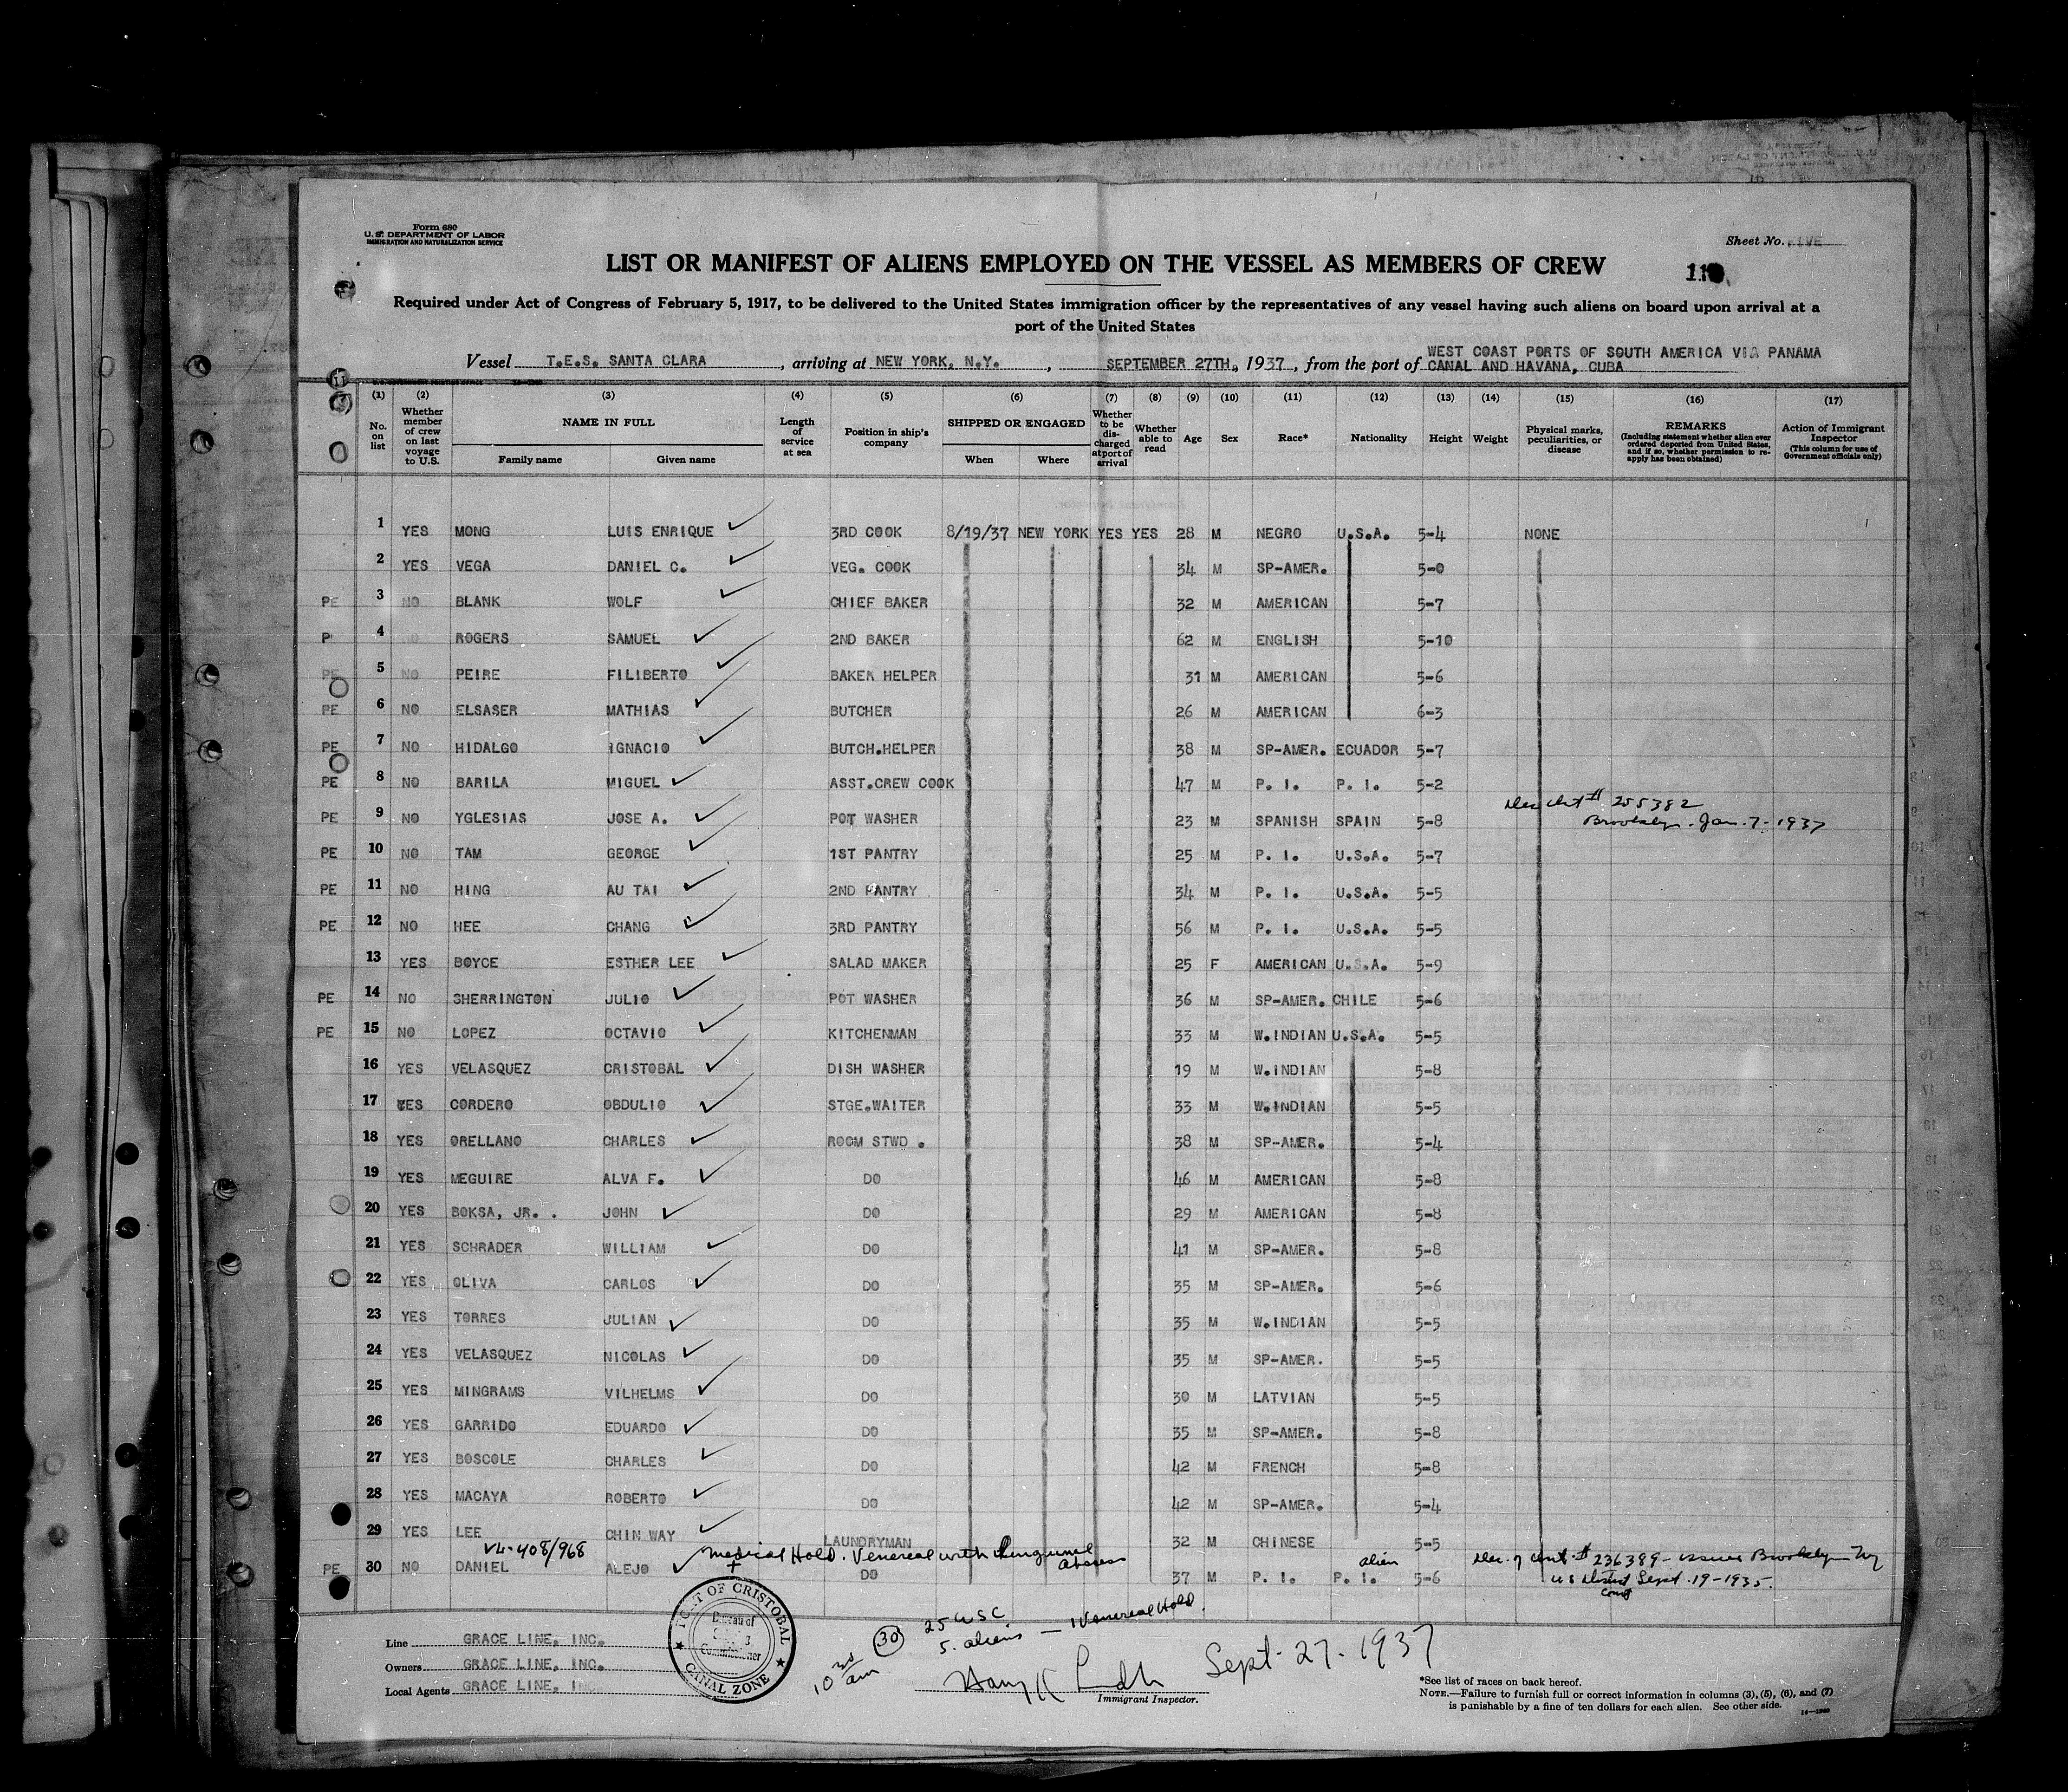 Form 680
U.S. DEPARTMENT OF LABOR
IMMIGRATION AND NATURALIZATION SERVICE
Sheet No. FIVE
LIST OR MANIFEST OF ALIENS EMPLOYED ON THE VESSEL AS MEMBERS OF CREW
Required under Act of Congress of February 5, 1917, to be delivered to the United States immigration officer by the representatives of any vessel having such aliens on board upon arrival at a
port of the United States
Vessel T.E.S. SANTA CLARA, arriving at NEW YORK, N.Y., SEPTEMBER 27TH, 1937, from the port of WEST COAST PORTS OF SOUTH AMERICA VIA PANAMA
CANAL AND HAVANA, CUBA
(1) (2) (3) (4) (5) (6) (7) (8) (9) (10) (11) (12) (13) (14) (15) (16) (17)
No. on list
Whether member of crew on last voyage to U.S.
NAME IN FULL
Family name
Given name
Length of service at sea
Position in ship's company
SHIPPED OR ENGAGED
When
Where
Whether to be discharged at port of arrival
Whether able to read
Age
Sex
Race*
Nationality
Height
Weight
Physical marks, peculiarities, or disease
REMARKS
(Including statement whether alien ever ordered deported from United States, and if so, whether permission to reapply has been obtained)
Action of Immigrant Inspector
(This column for use of Government officials only)
1 YES MONG LUIS ENRIQUE 3RD COOK 8/19/37 NEW YORK YES YES 28 M NEGRO U.S.A. 5-4 NONE
2 YES VEGA DANIEL C. VEG. COOK 34 M SP-AMER. 5-0
PE 3 NO BLANK WOLF CHIEF BAKER 32 M AMERICAN 5-7
P 4 ROGERS SAMUEL 2ND BAKER 62 M ENGLISH 5-10
PE 5 NO PEIRE FILIBERTO BAKER HELPER 31 M AMERICAN 5-6
PE 6 NO ELSASER MATHIAS BUTCHER 26 M AMERICAN 6-3
PE 7 NO HIDALGO IGNACIO BUTCH.HELPER 38 M SP-AMER. ECUADOR 5-7
PE 8 NO BARILA MIGUEL ASST.CREW COOK 47 M P. I. P. I. 5-2
PE 9 NO YGLESIAS JOSE A. POT WASHER 23 M SPANISH SPAIN 5-8 # 255382
Brooklyn. Jan. 7-1937
PE 10 NO TAM GEORGE 1ST PANTRY 25 M P. I. U.S.A. 5-7
PE 11 NO HING AU TAI 2ND PANTRY 34 M P. I. U.S.A. 5-5
PE 12 NO HEE CHANG 3RD PANTRY 56 M P. I. U.S.A. 5-5
13 YES BOYCE ESTHER LEE SALAD MAKER 25 F AMERICAN U.S.A. 5-9
PE 14 NO SHERRINGTON JULIO POT WASHER 36 M SP-AMER. CHILE 5-6
PE 15 NO LOPEZ OCTAVIO KITCHENMAN 33 M W.INDIAN U.S.A. 5-5
16 YES VELASQUEZ CRISTOBAL DISH WASHER 19 M W.INDIAN 5-8
17 YES CORDERO OBDULIO STGE.WAITER 33 M W.INDIAN 5-5
18 YES ORELLANO CHARLES ROOM STWD . 38 M SP-AMER. 5-4
19 YES MEGUIRE ALVA F. DO 46 M AMERICAN 5-8
20 YES BOKSA, JR. . JOHN DO 29 M AMERICAN 5-8
21 YES SCHRADER WILLIAM DO 41 M SP-AMER. 5-8
22 YES OLIVA CARLOS DO 35 M SP-AMER. 5-6
23 YES TORRES JULIAN DO 35 M W.INDIAN 5-5
24 YES VELASQUEZ NICOLAS DO 35 M SP-AMER. 5-5
25 YES MINGRAMS VILHELMS DO 30 M LATVIAN 5-5
26 YES GARRIDO EDUARDO DO 35 M SP-AMER. 5-8
27 YES BOSCOLE CHARLES DO 42 M FRENCH 5-8
28 YES MACAYA ROBERTO DO 42 M SP-AMER. 5-4
29 YES LEE CHIN WAY LAUNDRYMAN 32 M CHINESE 5-5
VL-408/968 Medical Hold. Venereal with Inguinal abscess
PE 30 NO DANIEL ALEJO DO 37 M P. I. P. I. alien 5-6 # 236389 - Brooklyn NY
US District Court Sept. 19-1935.
PORT OF CRISTOBAL
Bureau of
CANAL ZONE
Line GRACE LINE, INC.
Owners GRACE LINE, INC.
Local Agents GRACE LINE, INC
10 30 am
30
25 USC
5 aliens - 1 Venereal Hold.
Sept. 27. 1937
Immigrant Inspector.
*See list of races on back hereof.
NOTE.—Failure to furnish full or correct information in columns (3), (5), (6), and (7)
is punishable by a fine of ten dollars for each alien. See other side.